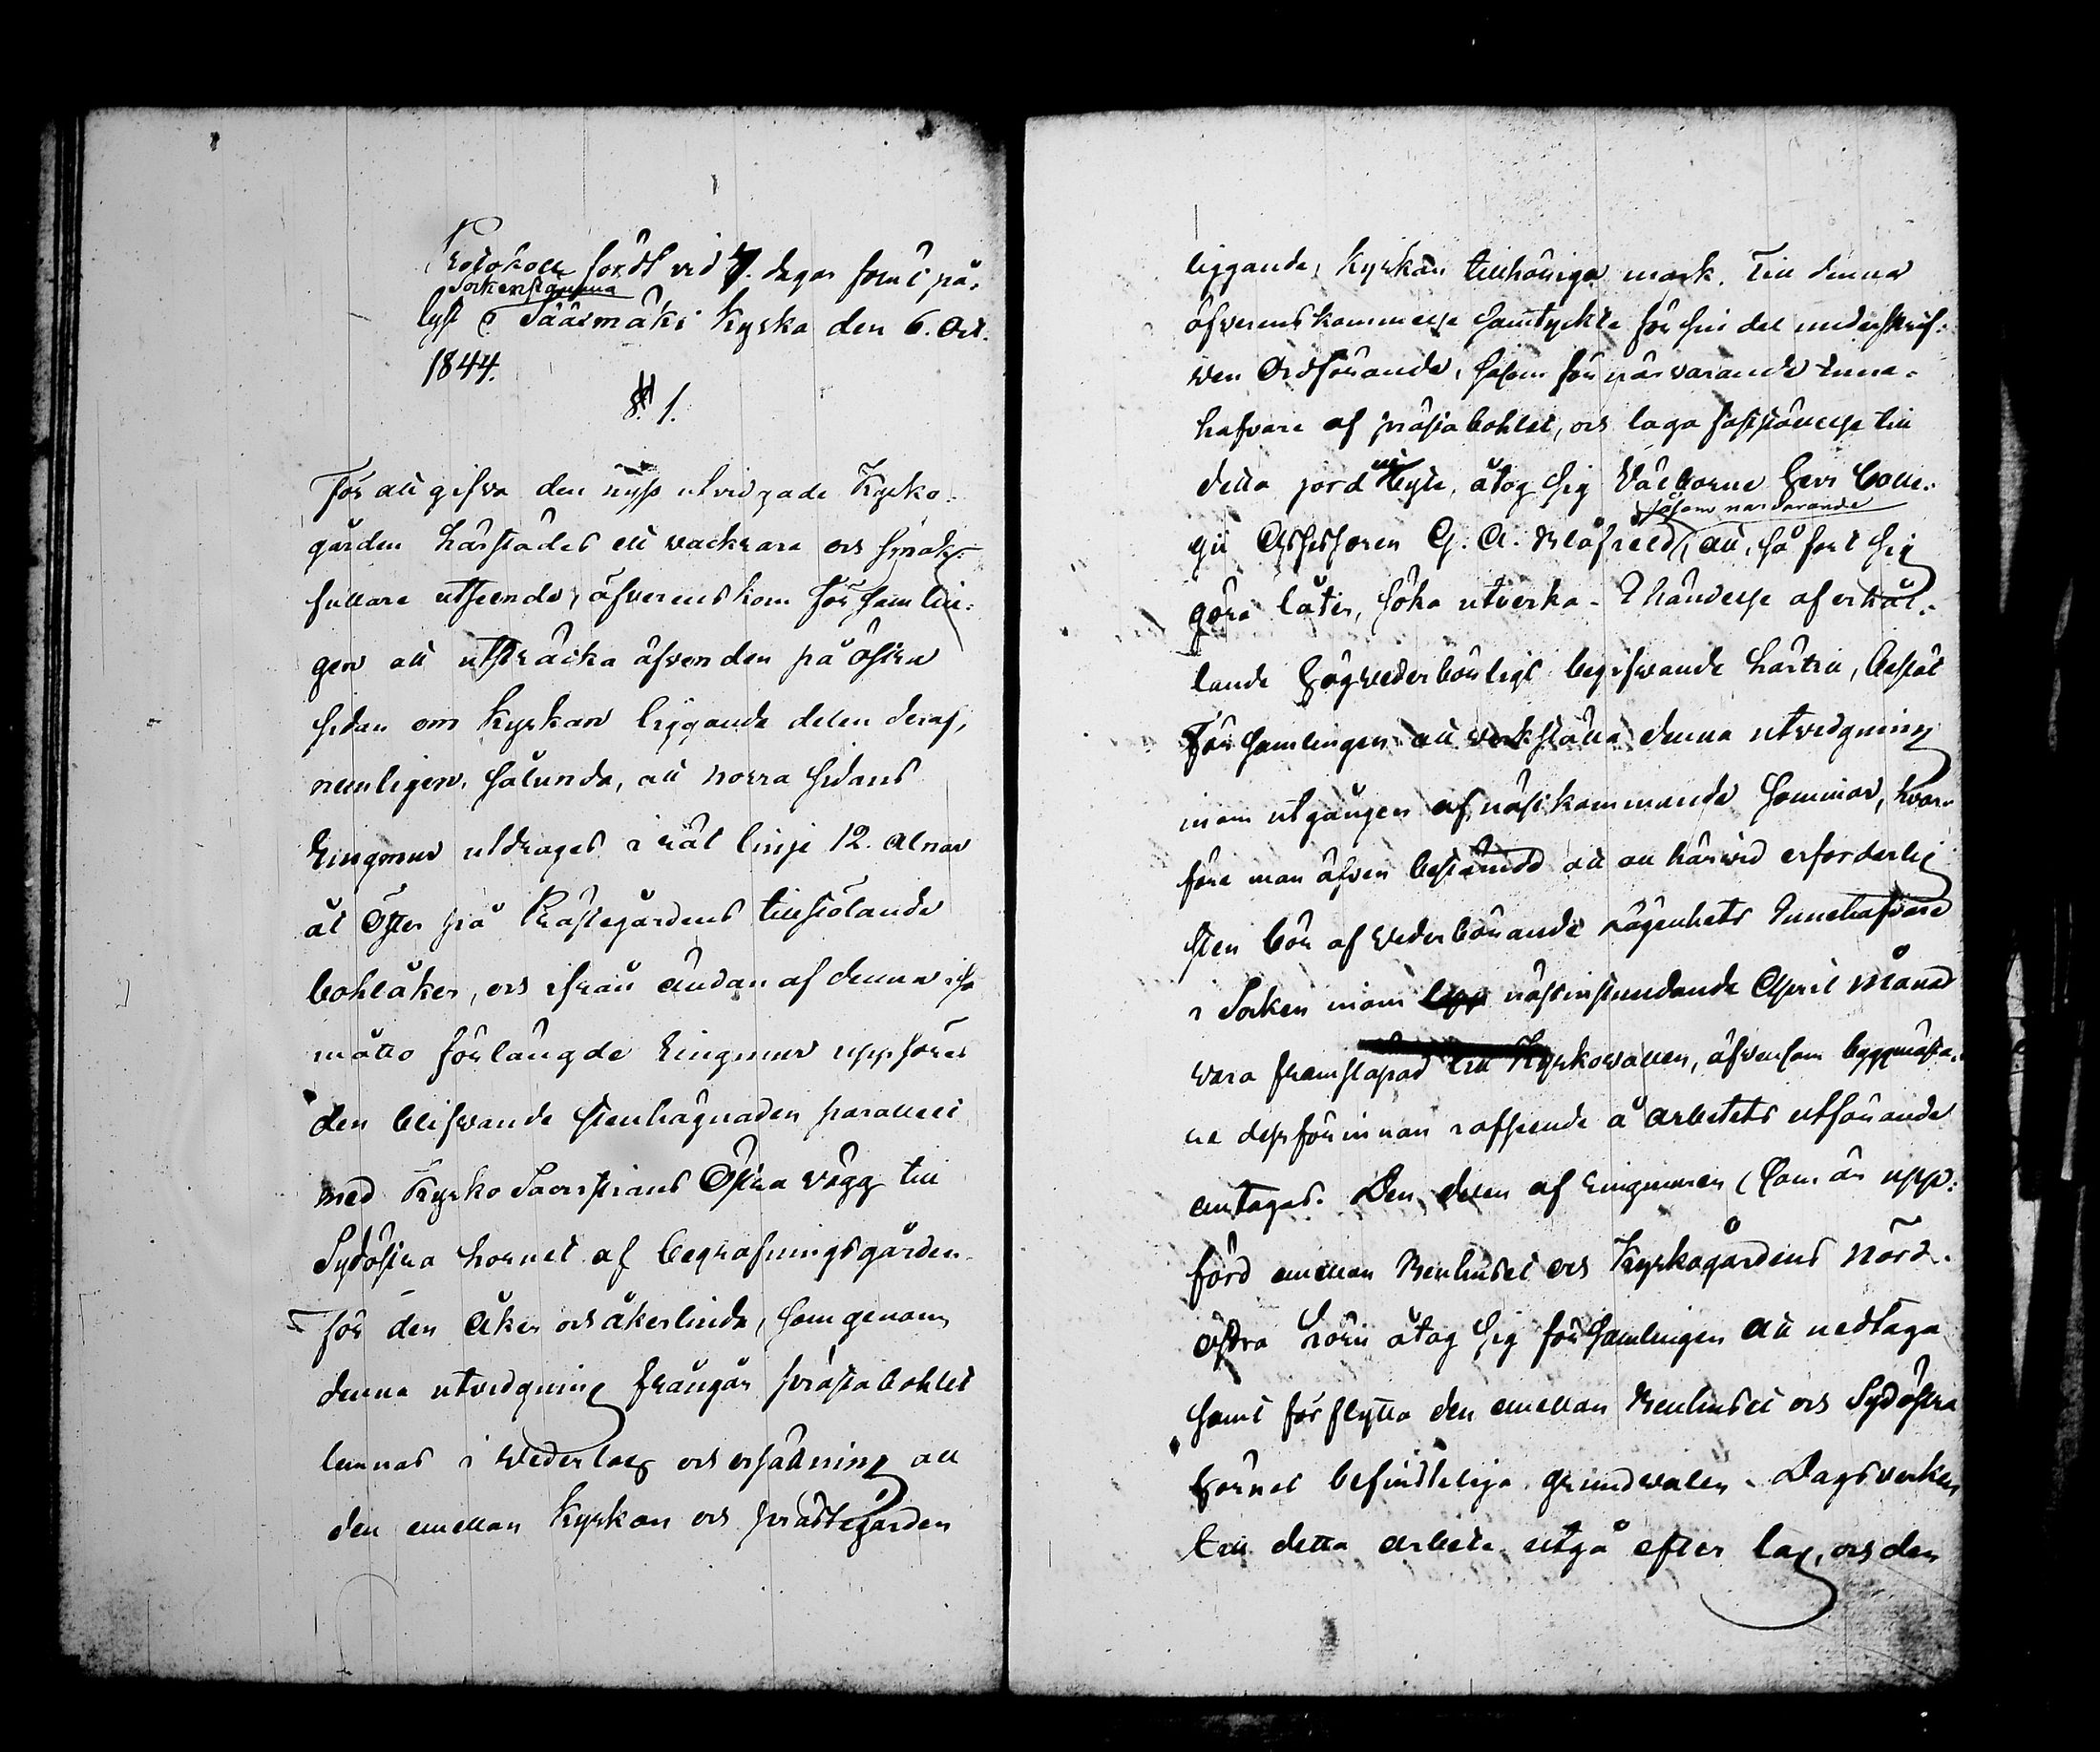 Protokoll fördt vid 7. dagar förut på-
Sockenstämma
lyst i Sääxmäki Kyrka den 6. Oct.
1844.
§ 1.
För att gifva den nyss utvidgade Kyrko-
gården härstädes ett vackrare och smak-
fullare utseende, öfverenskom Församlin-
gen att utsträcka äfven den på östra
sidan om Kyrkan liggande delen deraf,
nemligen sålunda, att norra sidans
Ringmur utdrages i rät linje 12. alnar
åt Öster på Prästegårdens tillstötande
bohlåker, och ifrån ändan af denna i så
måtto förlängde Ringmur uppföres
den blifvande stenhägnaden parallelt
med Kyrko Sacristians Östra vägg till
Sydöstra hornet af begrafningsgården.
För den åker och åkerlinda, som genom
denna utvidgning frångår prästabohlet
lemnas i vederlag och ersättning all
den emellan Kyrkan och prästegården
liggande, Kyrkan tillhöriga mark. Till denna
öfverenskommelse samtyckte för sin del underskrif-
ven Ordförande, såsom för närvarande Inne-
hafvare af prästabohlet, och laga fastställelse till
detta jord utbyte, åtog sig Välborne Herr Colle-
såsom närvarande
gii Assessoren G. A. Blåfield, att, så fort sig
göra låter, söka utverka. I händelse af erhål-
lande Högvederbörligt begifvande härtill, beslöt
Församlingen att verkställa denna utvidgning
inom utgången af nästkommande Sommar, hvar-
före man äfven bestämde att all härvid erforderlig
sten bör af vederbörande lägenhets Innehafvare
i Socken inom nästinstundande April Månad
vara framslapad till Kyrkovallen, äfvensom byggmästa-
re dessförinnan i afseende å arbetets utförande
antagas. Den delen af ringmuren, som är upp-
förd emellan Benhuset och Kyrkogårdens Nord-
östra hörn åtog sig församlingen att nedtaga
samt förflytta den emellan Benhuset och Sydöstra
hörnet befinteliga grundvalen. Dagsverken
till detta arbete utgå efter lag, och den